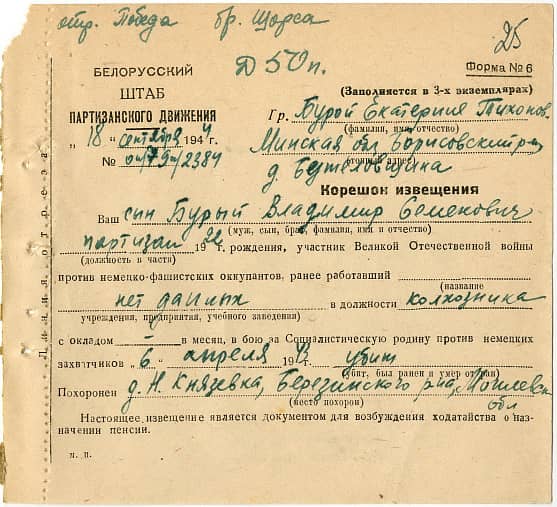 отр. Победа бр. Щорса
25
Д 50 п.
Форма № 6
БЕЛОРУССКИЙ
ШТАБ
ПАРТИЗАНСКОГО ДВИЖЕНИЯ
(Заполняется в 3-х экземплярах)
„ 18 " сентября 1944 г.
Гр. Бурой Екатерине Тихонов.
(фамилия, имя отчество)
№ 2384
Минская обл. Борисовский р-н
д.
Корешок извещения
Ваш сын Бурый Владимир Семенович
(муж, сын, брат, фамилия, имя и отчество)
партизан 1922 г. рождения, участник Великой Отечественной войны
(должность в части)
против немецко-фашистских оккупантов, ранее работавший
(название
нет данных в должности колхозника
учреждения, предприятия, учебного заведения)
с окладом — в месяц, в бою за Социалистическую родину против немецких
захватчиков „ 6 " апреля 1943 г. убит
(убит, был ранен и умер от ран)
Похоронен д. Н. Князевка, Березинского р-на, Могилевск.
обл
(место похорон)
Настоящее извещение является документом для возбуждения ходатайства о наз-
начении пенсии.
м. п.
Линия отреза